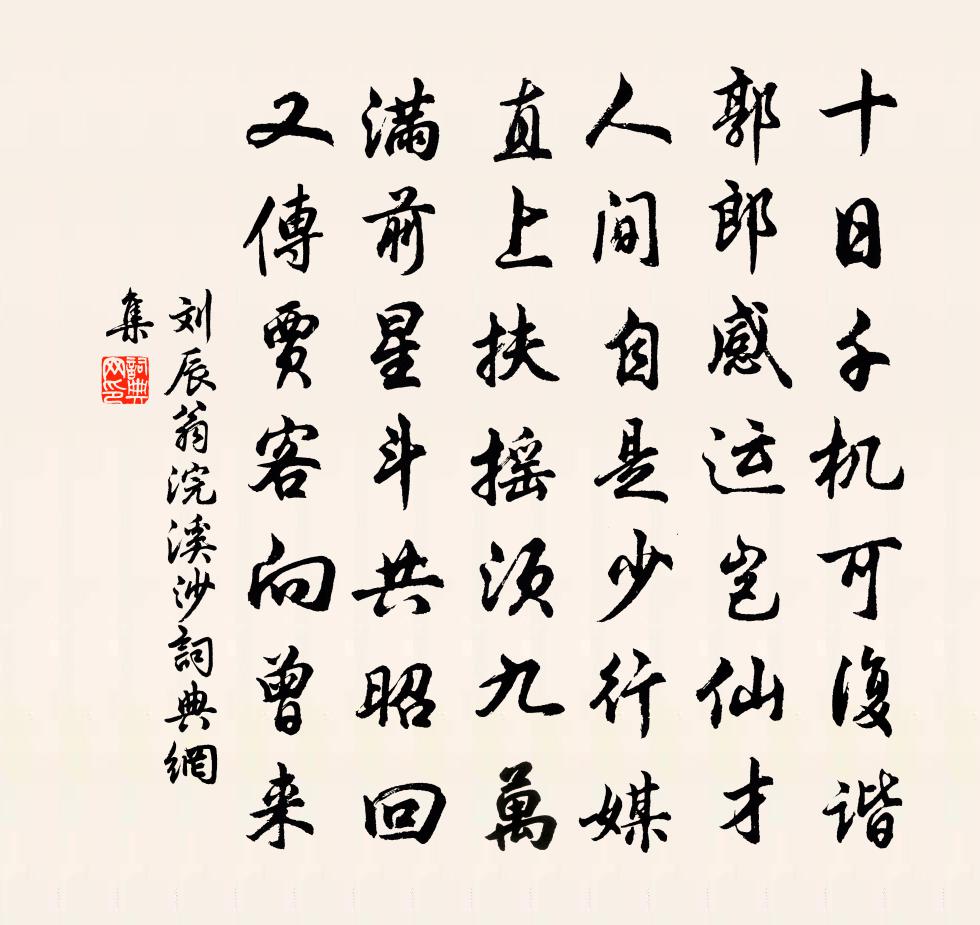 十日千机可復谐
郭郎感运岂仙才
人间自是少行媒
直上扶摇须九萬
满前星斗共昭回
又傳賈客向曾来
刘辰翁浣溪沙詞典網
集
詞典
网印